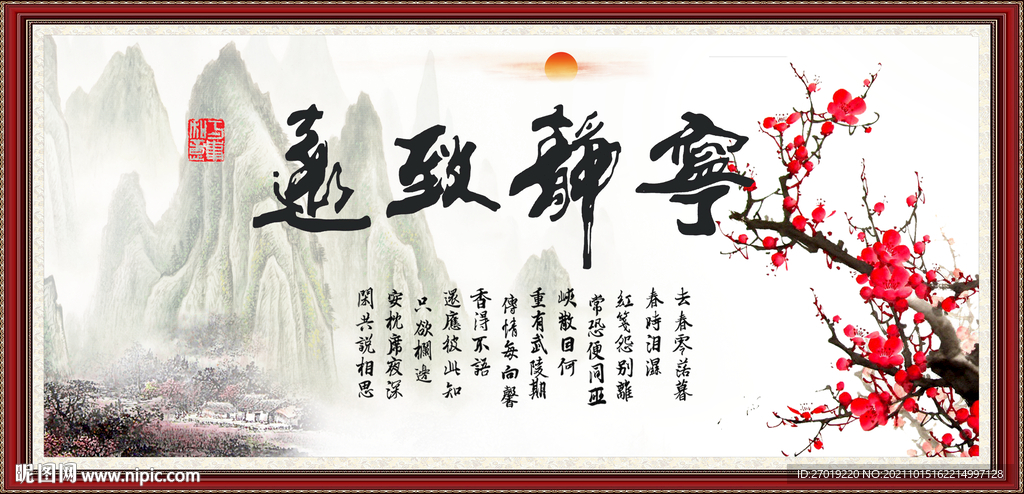 寧靜致遠
去春零落暮
春時泪濕
紅箋怨别離
常恐便同巫
峽散因何
重有武陵期
傳情每向馨
香得不語
還應彼此知
只欲欄邊
安枕席夜深
閑共說相思
昵图网 www.nipic.com
ID:27019220 NO:20211015162214997128